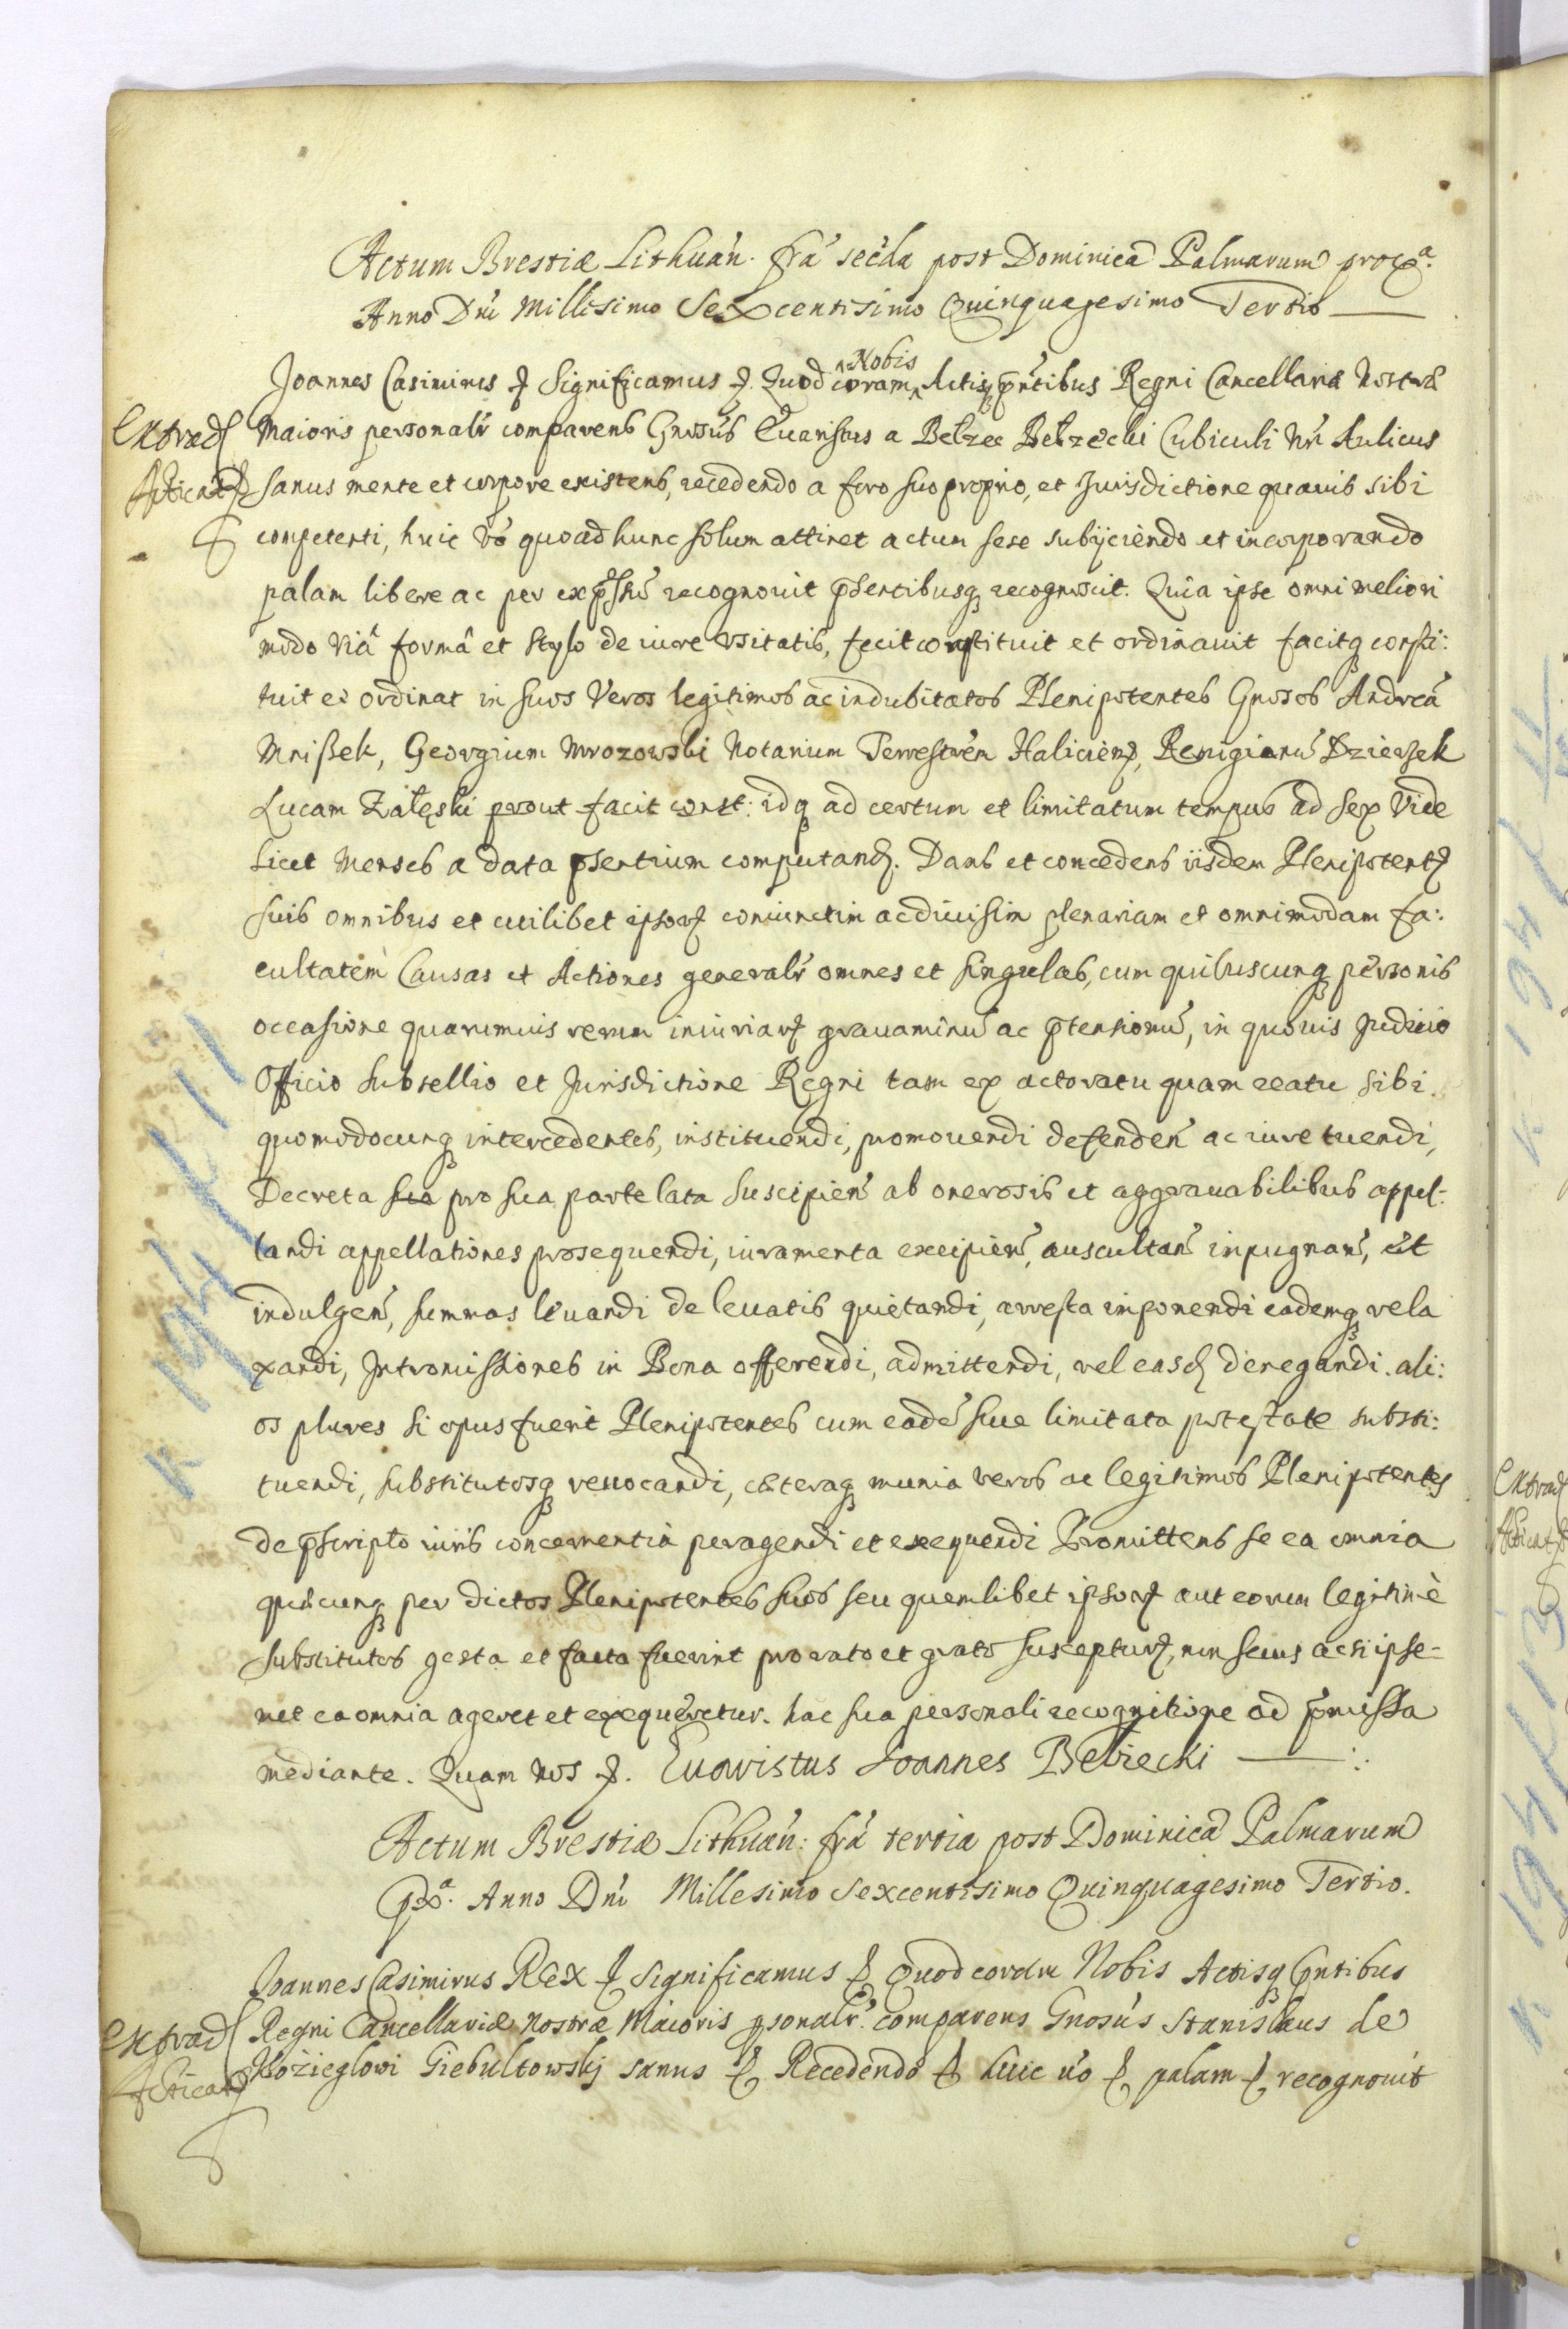 Actum Brestiæ Lithuan̄. fr̄a sec̄da post Dominicā Palmarum proxª.
Anno Dn̄i Millesimo Sexcentisimo Quinquagesimo Tertio
Nobis
Joannes Casimirus & Significamus & Quod coram Actisq pn̄tibus Regni Cancellariæ Nostræ
Extrad
Maioris personalr̄ comparens Gn̄osus Euaristus a Belzec Bełzecki Cubiculi Nr̄i Aulicus
sanus mente et corpore existens, recedendo a foro suo proprio, et Jurisdictione quauis sibi
competenti, huic v̄o quoad hunc solum attinet actum sese subijciendo et incorporando
palam libere ac per exp̄ssū recognouit p̄sentibusq recognoscit. Quia ipse omni meliori
modo viâ formâ et stylo de iure vsitatis, fecit constituit et ordinauit facitq consti:
tuit et ordinat in suos Veros legitimos ac indubitatos Plenipotentes Gnosos Andreā
Mnißek, Georgium Mrozowski Notarium Terrestrem Haliciens, Remigianū Dzierzek
Lucam Załęski prout facit const: idq ad certum et limitatum tempus ad sex Vide
licet Menses a data p̄sentium computand. Dans et concedens iisdem Plenipotent
suis omnibus et cuilibet ipsor coniunctim ac diuisim plenariam et omnimodam fa:
cultatem Causas et Actiones generalr̄ omnes et singulas, cum quibuscunq personis
occasione quarumuis rerum iniuriar grauaminū ac p̄tensionū, in quouis Judicio
Officio subsellio et Jurisdictione Regni tam ex actoratu quam reatu sibi
quomodocunq intercedentes, instituendi, promouendi defenden̄ ac iure tuendi,
Decreta sua pro sua parte lata suscipien̄ ab onerosis et aggrauabilibus appel:
landi appellationes prosequendi, iuramenta excipien̄, auscultan̄ inpugnan̄, et
indulgen̄, summas leuandi de leuatis quietandi, arresta imponendi eademq rela
xandi, Intromissiones in Bona offerendi, admittendi, vel easd denegandi. ali:
os plures si opus fuerit Plenipotentes cum eadē siue limitata potestate substi:
tuendi, substitutosq reuocandi, cæteraq munia veros ac legitimos Plenipotentes
de p̄scripto iuris concernentia peragendi et exequendi Promittens se ea omnia
quæcunq per dictos Plenipotentes suos seu quemlibet ipsor aut eorum legitimè
substitutos gesta et facta fuerint pro rato et grato suscepturꝝ, non secus ac si ipse-
met ea omnia ageret et exequeretur. hac sua personali recognitione ad p̄missa
mediante. Quam nos &. Euaristus Joannes Bełzecki
Actum Brestiæ Lithuan̄: fr̄a tertia post Dominicā Palmarum
pxª. Anno Dn̄i Millesimo Sexcentisimo Quinquagesimo Tertio.
Joannes Casimirus REX & Significamus & Quod coram Nobis Actisq pn̄tibus
Extrad
Regni Cancellariæ Nostræ Maioris psonalr̄. comparens Gnosus Stanislaus de
Kozieglowi Giebultowskj sanus & Recedendo & huic v̄o & palam & recognouit